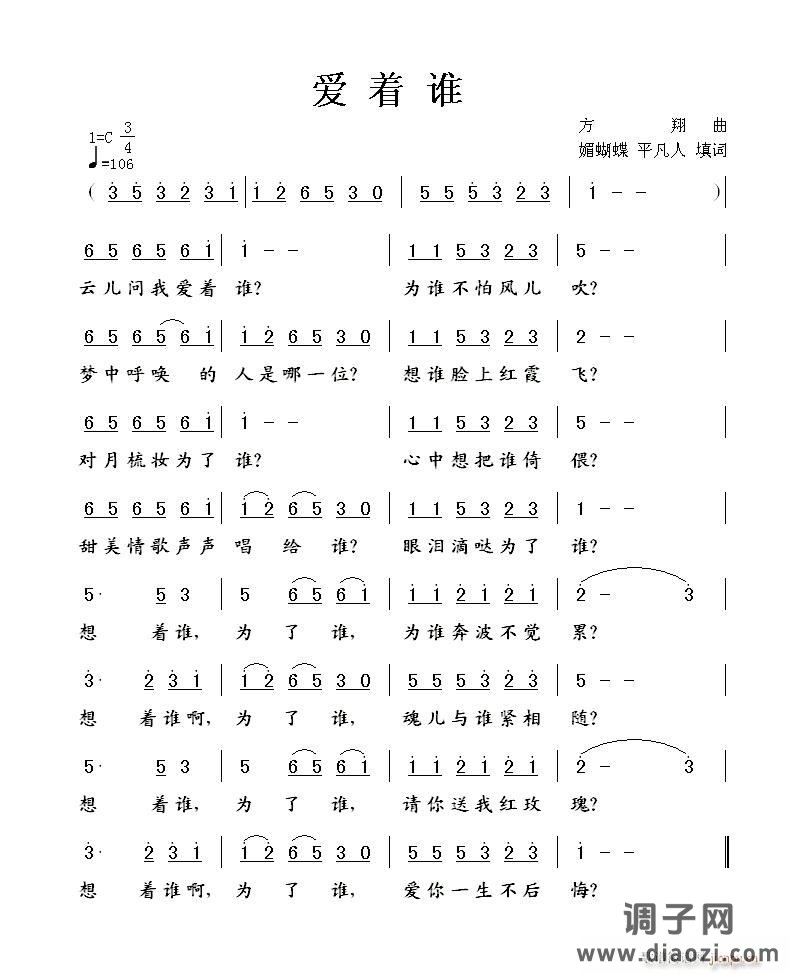 爱着谁
1=C 3/4
方 翔 曲
♩=106
媚蝴蝶 平凡人 填词
( 3 5 3 2 3 1 | 1 2 6 5 3 0 | 5 5 5 3 2 3 | 1 - - ) |
6 5 6 5 6 1 | 1 - - | 1 1 5 3 2 3 | 5 - - |
云儿问我爱着 谁? 为谁不怕风儿 吹?
6 5 6 5 6 1 | 1 2 6 5 3 0 | 1 1 5 3 2 3 | 2 - - |
梦中呼唤 的 人是哪一位? 想谁脸上红霞 飞?
6 5 6 5 6 1 | 1 - - | 1 1 5 3 2 3 | 5 - - |
对月梳妆为了 谁? 心中想把谁倚 偎?
6 5 6 5 6 1 | 1 2 6 5 3 0 | 1 1 5 3 2 3 | 1 - - |
甜美情歌声声 唱 给 谁? 眼泪滴哒为了 谁?
5· 5 3 | 5 6 5 6 1 | 1 1 2 1 2 1 | 2 - 3 |
想 着谁, 为 了 谁, 为谁奔波不觉 累?
3· 2 3 1 | 1 2 6 5 3 0 | 5 5 5 3 2 3 | 5 - - |
想 着谁啊, 为 了 谁, 魂儿与谁紧相 随?
5· 5 3 | 5 6 5 6 1 | 1 1 2 1 2 1 | 2 - 3 |
想 着谁, 为 了 谁, 请你送我红玫 瑰?
3· 2 3 1 | 1 2 6 5 3 0 | 5 5 5 3 2 3 | 1 - - ‖
想 着谁啊, 为 了 谁, 爱你一生不后 悔?
调子网
www.diaozi.com